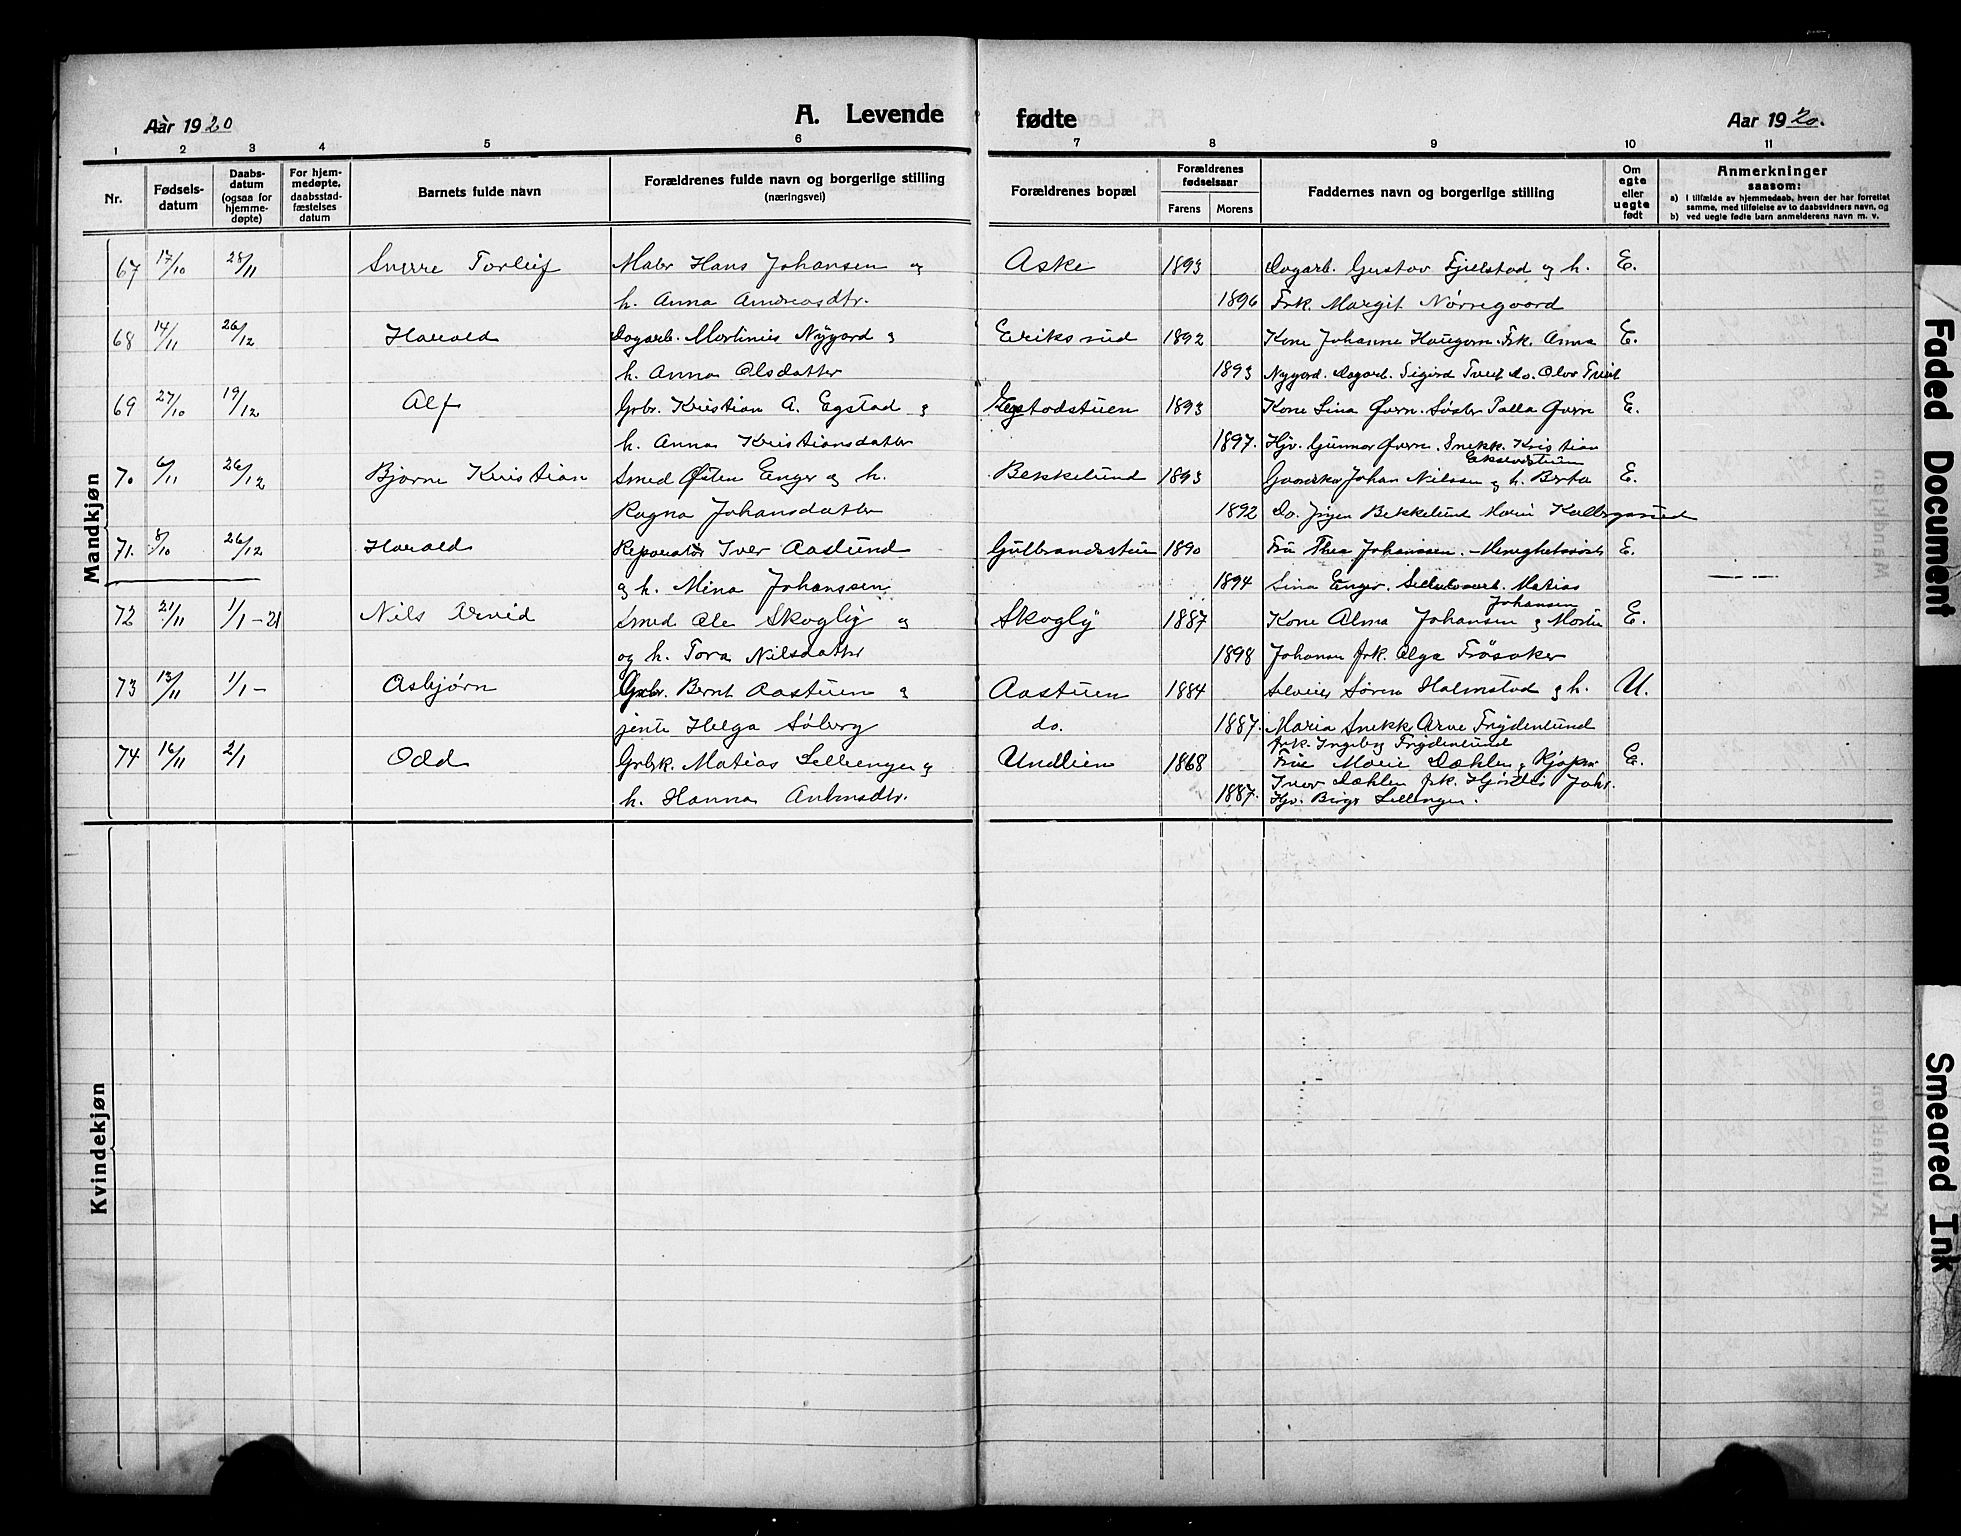 Aar 1920 A. Levende fødte Aar 1920.
1 2 3 4 5 6 7 8 9 10 11
Nr. Fødsels-datum Daabs-datum (ogsaa for hjemme-døpte) For hjem-medøpte, daabsstad-fæstelses datum Barnets fulde navn Forældrenes fulde navn og borgerlige stilling (næringsvei) Forældrenes bopæl Forældrenes fødselsaar Farens Morens Faddernes navn og borgerlige stilling Om egte eller uegte født Anmerkninger saasom: a) I tilfælde av hjemmedaab, hvem der har forrettet samme, med tilføielse av to daabsvidners navn, og b) ved uegte fødte barn anmelderens navn m. v.
Mandkjøn
67 17/10 28/11 Sverre Torleif Hans Johansen og Aske 1893 Dagarb. Gustav Fjelstad og h. E.
h. Anna Andreasdtr. 1896 Frk. Margit Nørregaard
68 14/11 26/12 Harald Dagarb. Martinius Nygard og Erikssrud 1892 Kone Johanne Haugom. Frk. Anna E.
h. Anna Olsdatter 1893 Nygard. Dagarb. Sigurd Tveit do. Olav Tveit
69 27/10 19/12 Alf Grbr. Kristian A. Egstad og Egstadstuen 1893 Kone Lina Øvern. Søster Palla Øvern E.
h. Anna Kristiansdatter 1897. Hjv. Gunnar Øvern. Snekk. Kristian
70 6/11 26/12 Bjarne Kristian Smed Østen Enger og h. Bekkelund 1893 Johan Nilssen og h. Berta E.
Ragna Johansdatter 1892 Do. Bekkelund Marie
71. 8/10 26/12 Harald Reparatør Iver Aaslund Gulbrandsstuen 1890 Fru Thea Johanssen. E.
og h. Mina Johanssen 1894 Lina Enger. Matias
Johansen
72 21/11 1/1-21 Nils Arvid Smed Ole Skoglÿ og Skoglÿ 1887 Kone Alma Johansen og Martin E.
og h. Tora Nilsdatter 1898 Johansen frk. Olga Frøsaker
73 13/11 1/1- Asbjørn Grbr. Bernt Aastuen og Aastuen 1884 Søren Halmstad og h. U.
jente Helga Søberg do. 1887. Maria Snekk Arve Frydenlund
frk. Ingeborg Frydenlund
74 16/11 2/1 Odd Grbsk. Matias Sellienger og Undlien 1868 Frue Marie Dæhlen, Kjøpm. E.
Iver Dæhlen frk. Hjørdis
h. Hanna 1887. Hjv. Birger
Kvindekjøn
Faded Document
Smeared Ink